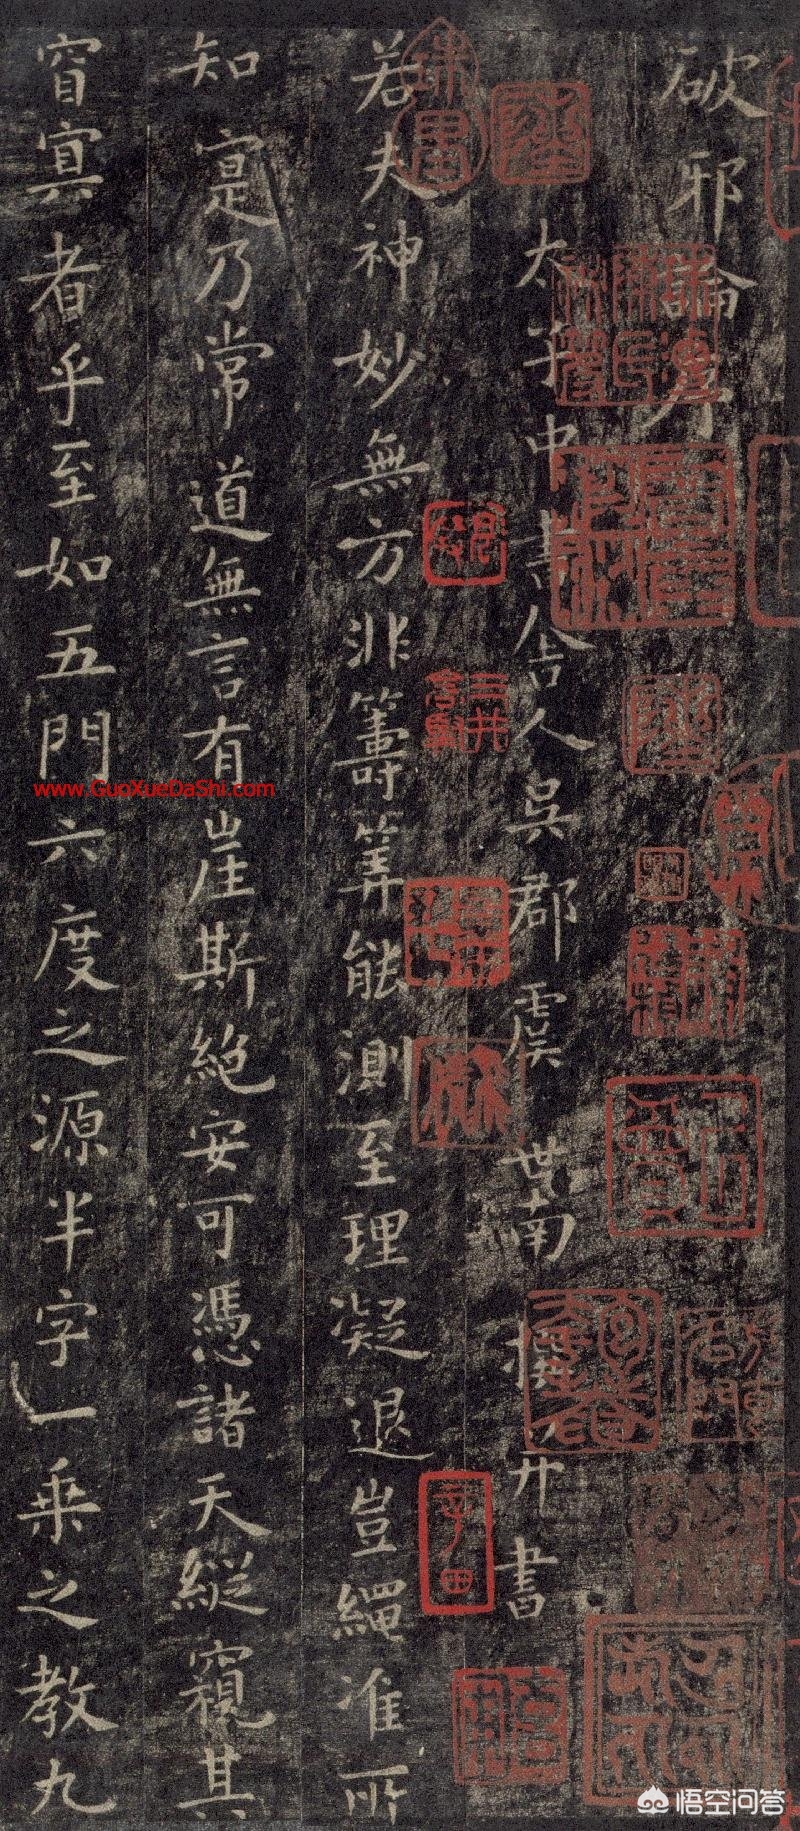 破邪論序
太子中書舍人吳郡虞世南撰并書
若夫神妙無方非籌筭能測至理凝退豈繩准所
知寔乃常道無言有崖斯絶安可憑諸天縱窺其
窅寘者乎至如五門六度之源半字一乘之教九
www.GuoXueDaShi.com
悟空问答